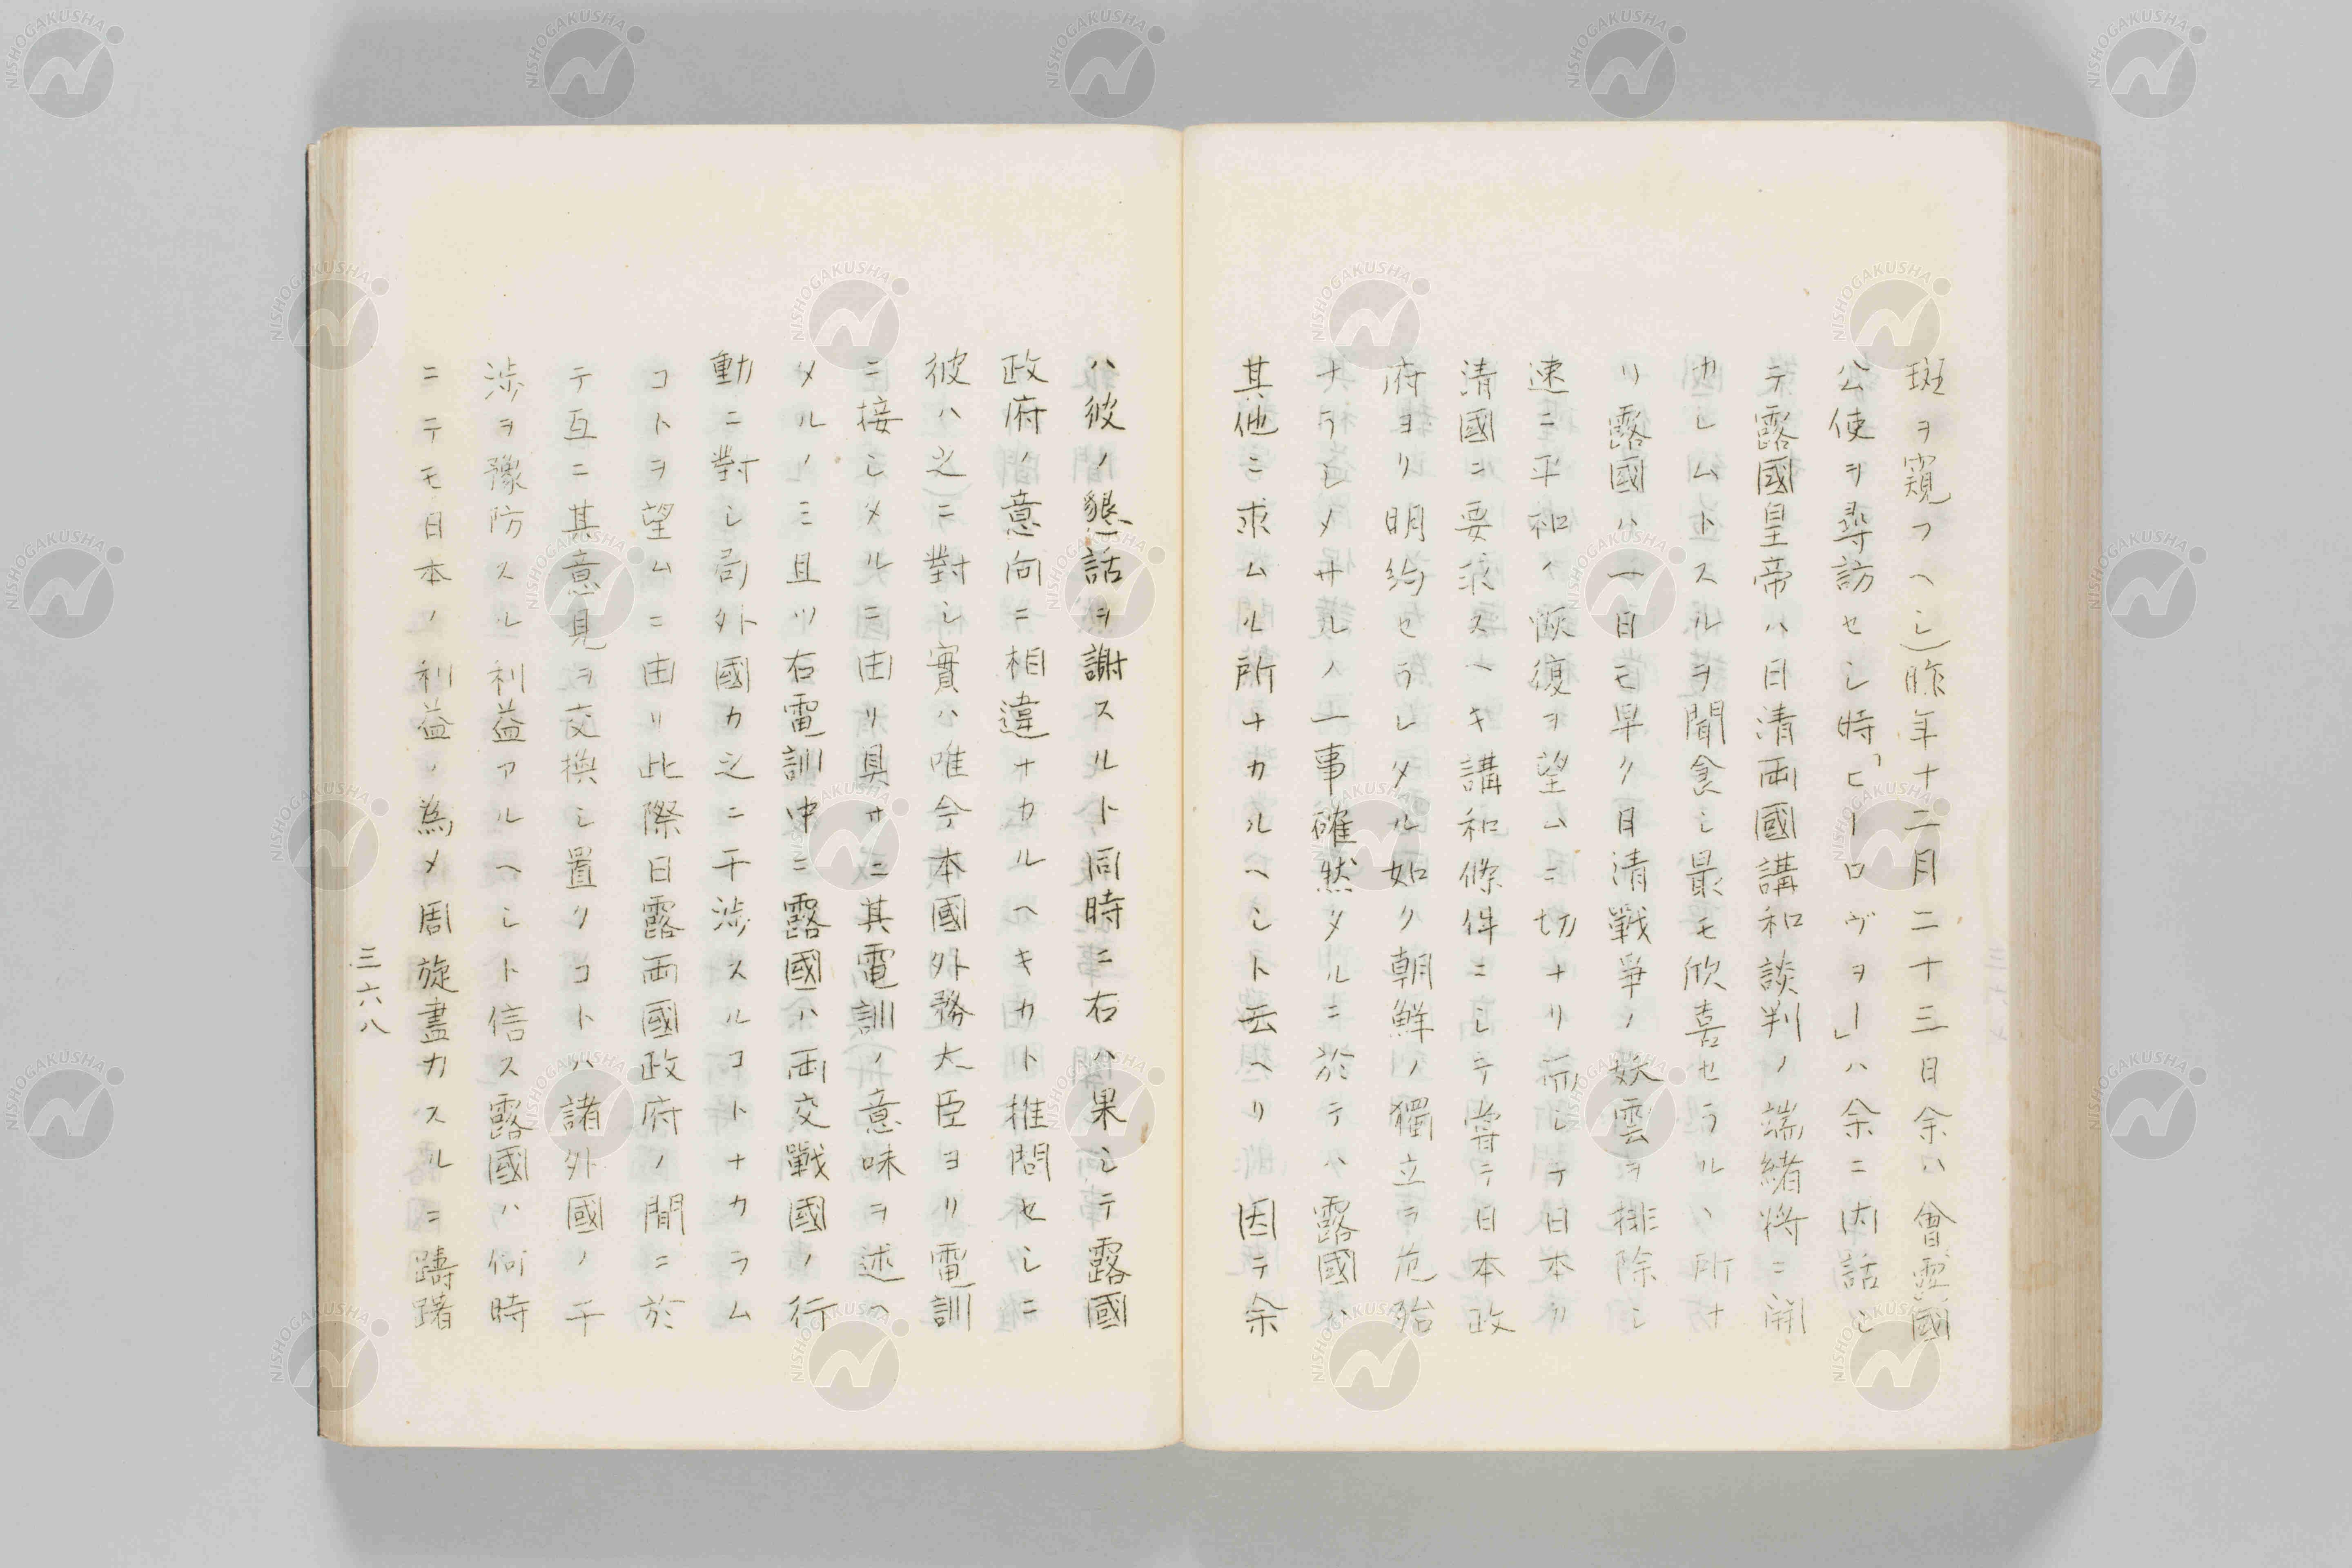 斑ヲ窺フヘシ)昨年十二月二十三日余ハ會露國
公使ヲ尋訪セシ時「ヒーロヴヲー」ハ余ニ内話シ
テ露國皇帝ハ日清両國講和談判ノ端緒将ニ開
カレムトスルヲ聞食シ最モ欣喜セラルヽ所ナ
リ露國ハ一日モ早ク日清戦争ノ妖雲ヲ排除シ
速ニ平和ノ恢復ヲ望ムニ切ナリ而シテ日本カ
清國ニ要求スヘキ講和條件ニシテ嘗テ日本政
府ヨリ明約セラレタル如ク朝鮮ノ獨立ヲ危殆
ナラシメサルノ一事確然タルニ於テハ露國ハ
其他ニ求ムル所ナカルヘシト云ヘリ 因テ余
ハ彼ノ懇話ヲ謝スルト同時ニ右ハ果シテ露國
政府ノ意向ニ相違ナカルヘキカト推問セシニ
彼ハ之ニ對シ實ハ唯今本國外務大臣ヨリ電訓
ニ接シタルニ由リ具サニ其電訓ノ意味ヲ述ヘ
タルノミ且ツ右電訓中ニ露國ハ両交戰國ノ行
動ニ對シ局外國カ之ニ干渉スルコトナカラム
コトヲ望ムニ由リ此際日露両國政府ノ間ニ於
テ互ニ其意見ヲ交換シ置クコトハ諸外國ノ干
渉ヲ豫防スル利益アルヘシト信ス露國ハ何時
ニテモ日本ノ利益ノ為メ周旋盡力スルニ躊躇
三六八
NISHOGAKUSHA